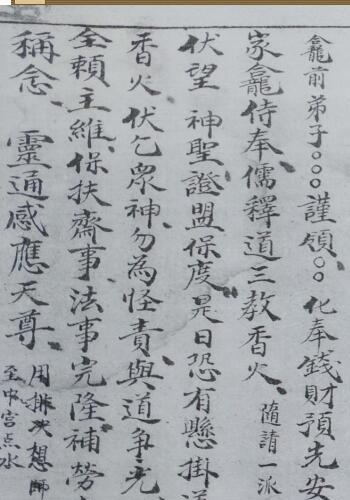 龕前弟子○○○謹領○○化奉錢財預先安
家龕侍奉儒釋道三教香火隨請一派
伏望神聖證盟保度是日恐有懸掛
香火伏乞眾神勿為怪責與道爭光
全賴主維保扶齋事法事完隆補勞
稱念靈通感應天尊
用排次想師
至中宮点水